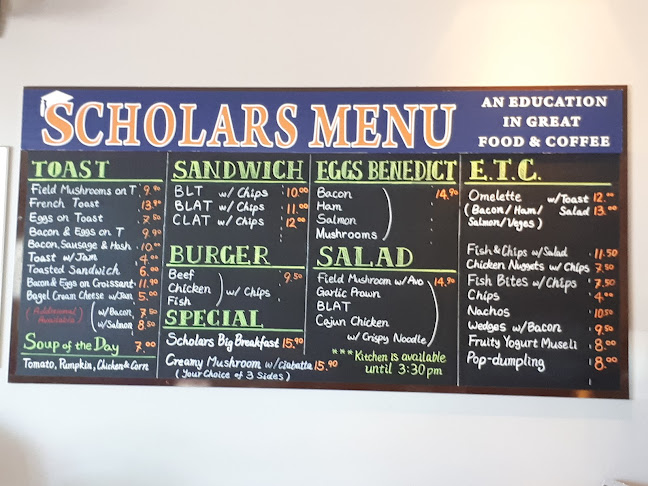 SCHOLARS MENU
AN EDUCATION
IN GREAT
FOOD & COFFEE
TOAST
Field Mushrooms on T 9.90
French Toast 13.90
Eggs on Toast 7.50
Bacon & Eggs on T 9.90
Bacon, Sausage & Hash 10.00
Toast w/Jam 4.00
Toasted Sandwich 6.00
Bacon & Eggs on Croissant 11.90
Bagel Cream Cheese w/Jam 5.00
(Additional Available) w/Bacon 7.50
w/Salmon 8.50
Soup of the Day 7.00
Tomato, Pumpkin, Chicken & Corn
SANDWICH
BLT w/ Chips 10.00
BLAT w/ Chips 11.00
CLAT w/ Chips 12.00
BURGER
Beef 9.50
Chicken w/ Chips
Fish
SPECIAL
Scholars Big Breakfast 15.90
Creamy Mushroom w/ciabatta 15.90
(Your Choice of 3 Sides)
EGGS BENEDICT
Bacon 14.90
Ham
Salmon
Mushrooms
SALAD
Field Mushroom w/Avo 14.90
Garlic Prawn
BLAT
Cajun Chicken
w/ Crispy Noodle
***Kitchen is available
until 3:30pm
E.T.C.
Omelette w/Toast 12.00
(Bacon/Ham/ Salad 13.00
Salmon/Veges)
Fish & Chips w/Salad 11.50
Chicken Nuggets w/Chips 7.50
Fish Bites w/Chips 7.50
Chips 4.00
Nachos 10.50
Wedges w/Bacon 9.50
Fruity Yogurt Museli 8.00
Pop-dumpling 8.00